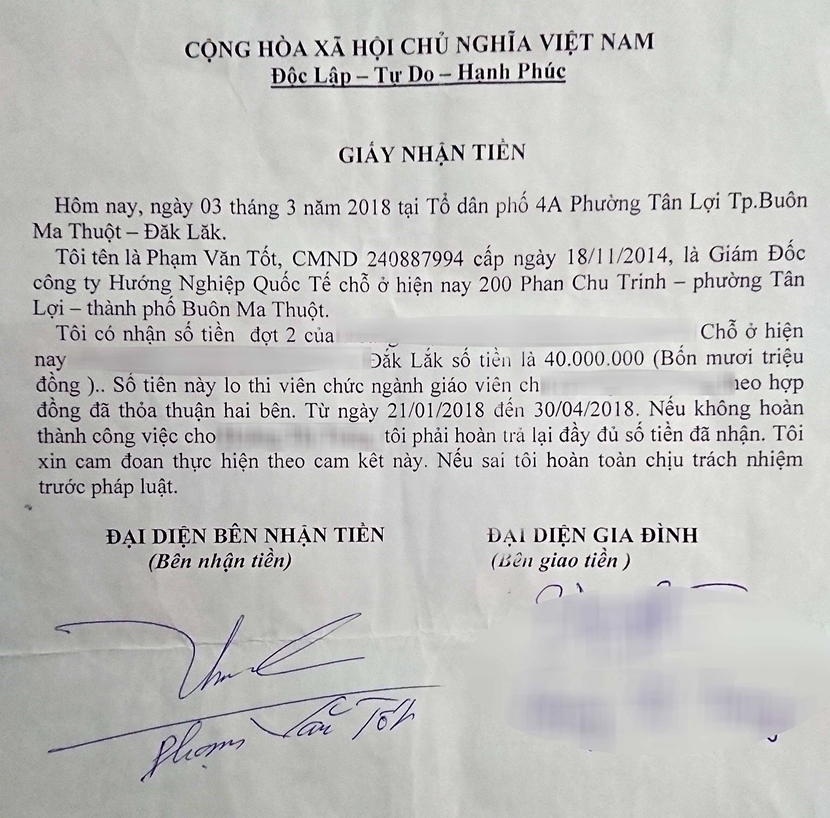 CỘNG HÒA XÃ HỘI CHỦ NGHĨA VIỆT NAM
Độc Lập – Tự Do – Hạnh Phúc
GIẤY NHẬN TIỀN
Hôm nay, ngày 03 tháng 3 năm 2018 tại Tổ dân phố 4A Phường Tân Lợi Tp.Buôn
Ma Thuột – Đăk Lăk.
Tôi tên là Phạm Văn Tốt, CMND 240887994 cấp ngày 18/11/2014, là Giám Đốc
công ty Hướng Nghiệp Quốc Tế chỗ ở hiện nay 200 Phan Chu Trinh – phường Tân
Lợi – thành phố Buôn Ma Thuột.
Tôi có nhận số tiền đợt 2 của Chỗ ở hiện
nay Đắk Lắk số tiền là 40.000.000 (Bốn mươi triệu
đồng ).. Số tiên này lo thi viên chức ngành giáo viên ch heo hợp
đồng đã thỏa thuận hai bên. Từ ngày 21/01/2018 đến 30/04/2018. Nếu không hoàn
thành công việc cho tôi phải hoàn trả lại đầy đủ số tiền đã nhận. Tôi
xin cam đoan thực hiện theo cam kêt này. Nếu sai tôi hoàn toàn chịu trách nhiệm
trước pháp luật.
ĐẠI DIỆN BÊN NHẬN TIỀN
(Bên nhận tiền)
ĐẠI DIỆN GIA ĐÌNH
(Bên giao tiền )
Phạm Văn Tốt